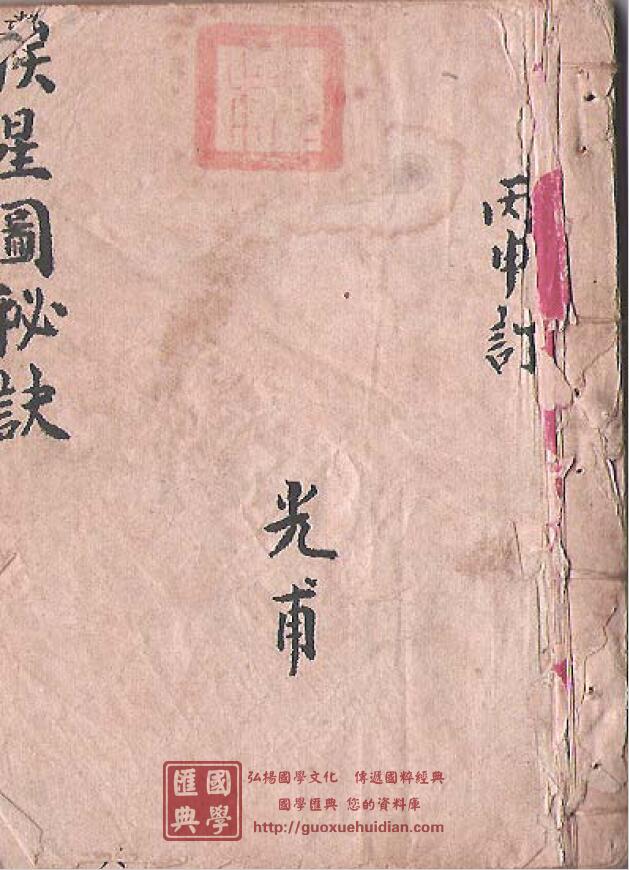 丙申訂
光甫
星圖祕訣
國學匯典
弘揚國學文化 傳遞國粹經典
國學匯典 您的資料庫
http://guoxuehuidian.com